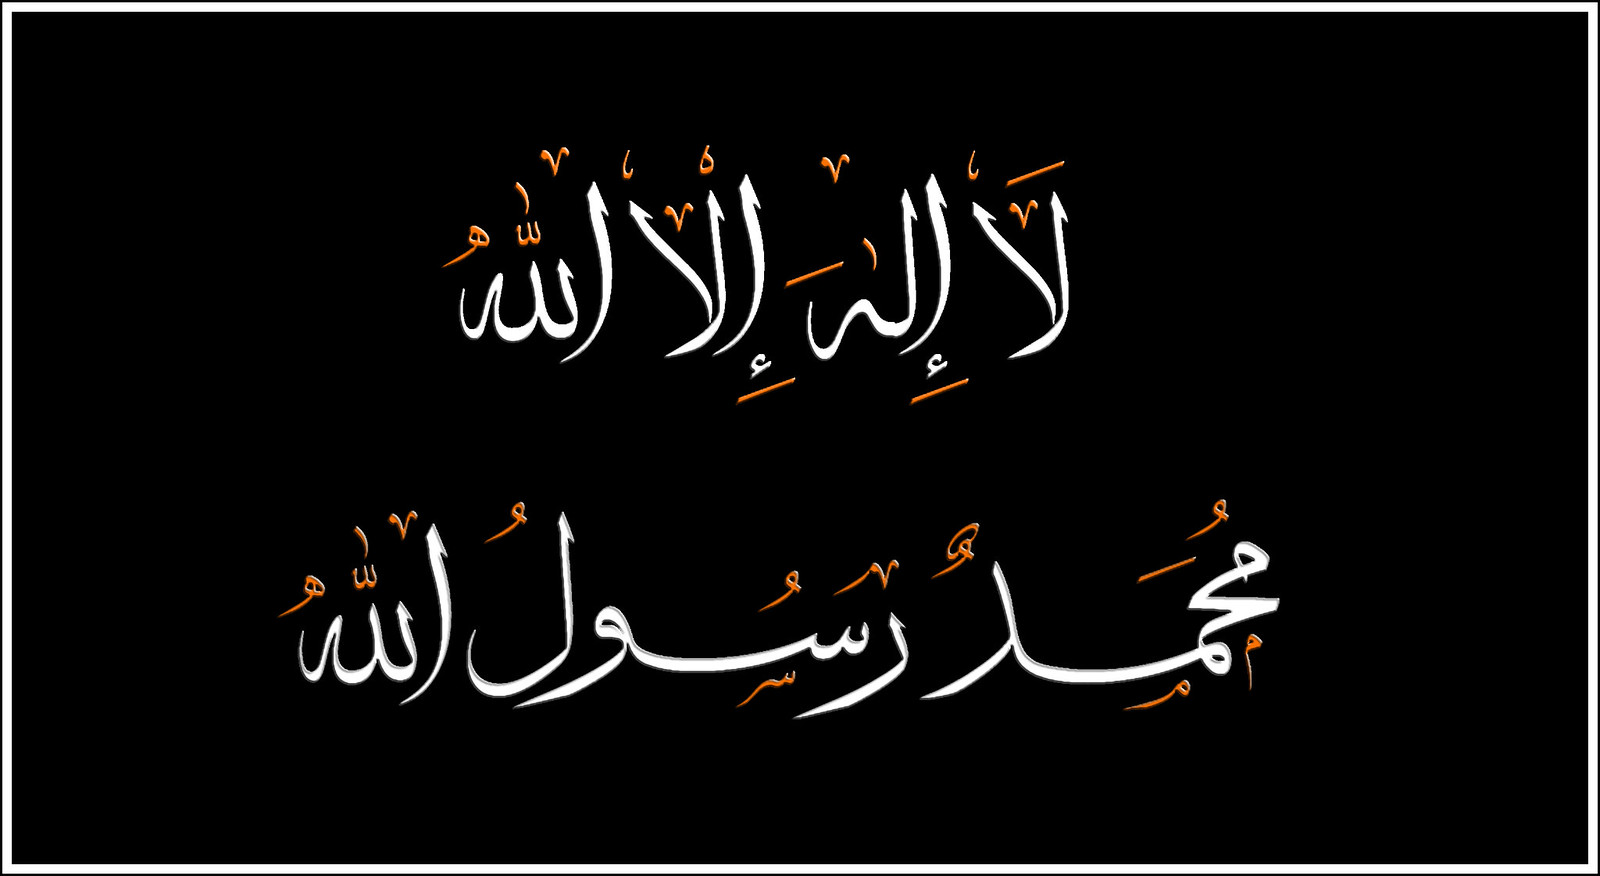 لَا إِلٰهَ إِلَّا اللّٰهُ
مُحَمَّدٌ رَسُولُ اللّٰهُ